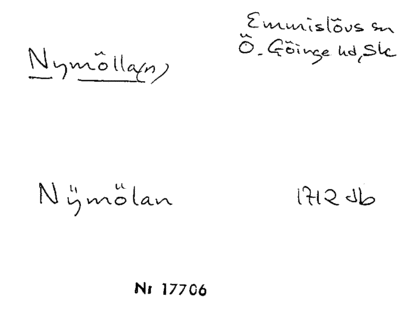 Nymölla(n)
Emmislövs sn
Ö. Göinge hd, Sk
Nÿmölan
1712 db
Nr 17706